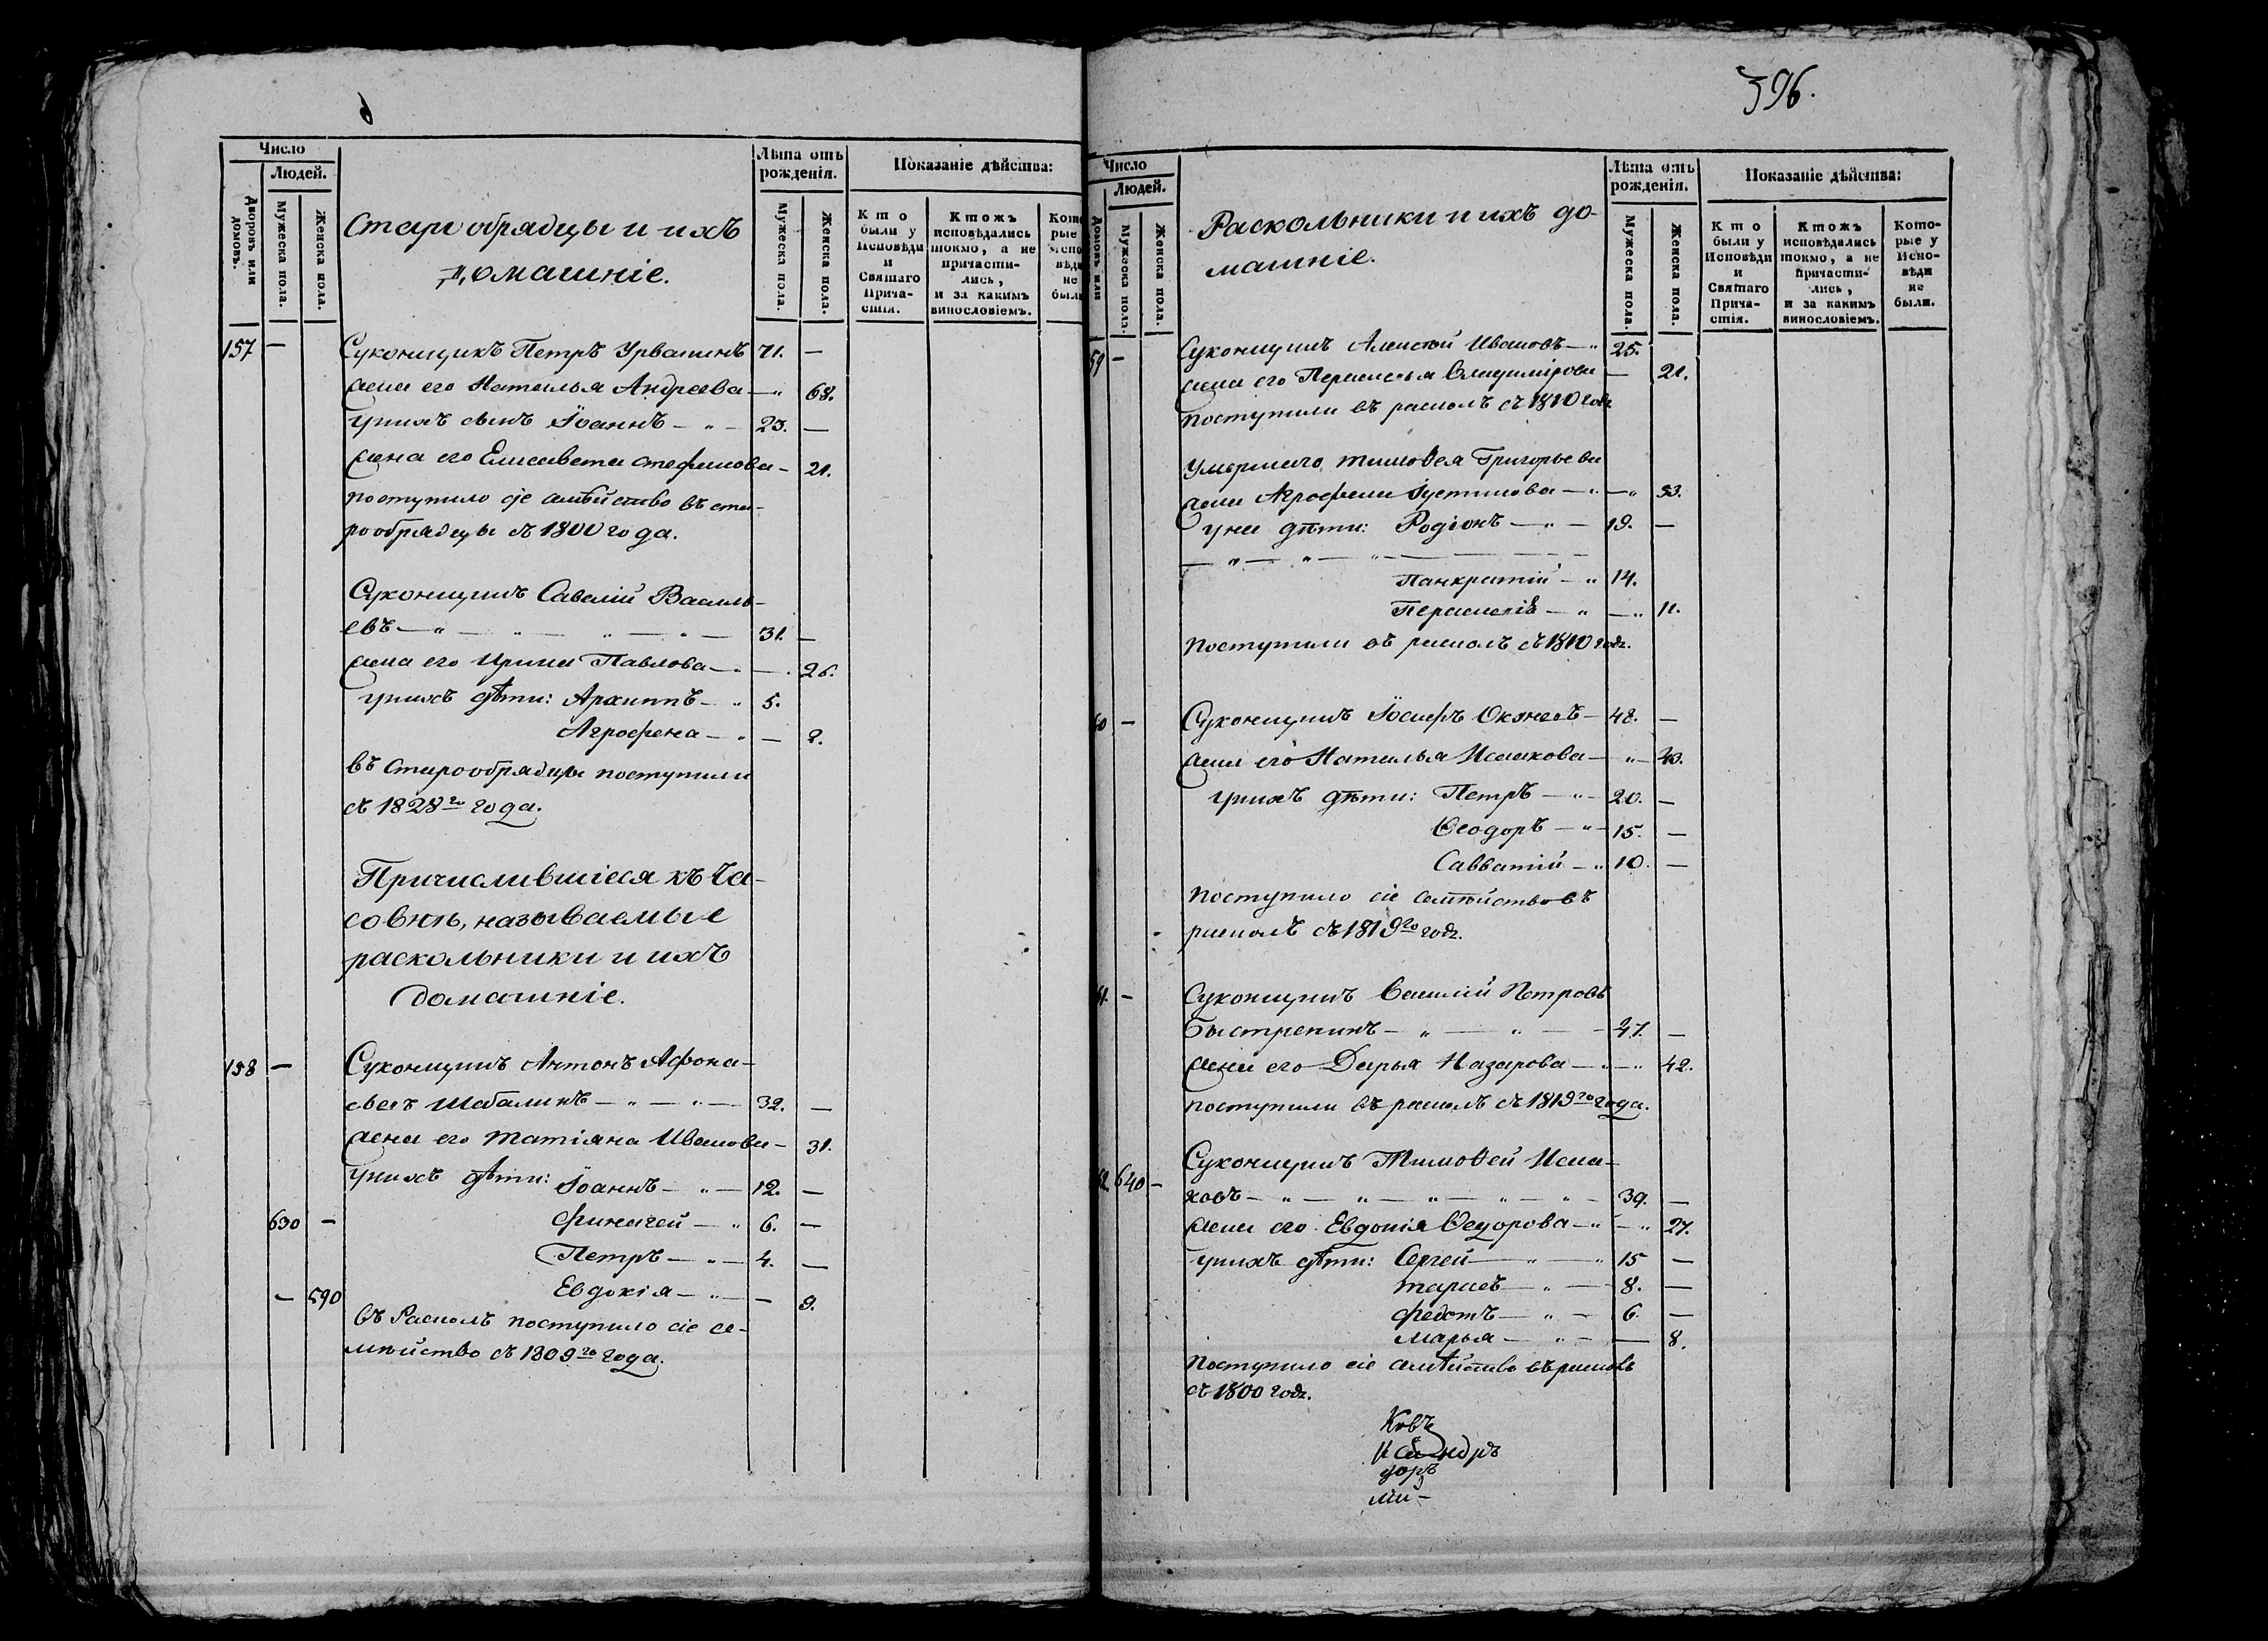 Число
Людей.
Дворовъ или домовъ.
Мужеска пола.
Женска пола.
Старообрядцы и ихъ
домашніе.
Лѣта отъ рожденія.
Мужеска пола.
Женска пола.
Показаніе дѣйства:
Кто были у Исповѣди и Святаго Причастія.
Ктожъ исповѣдались токмо, а не причастились, и за какимъ винословіемъ.
157 — Суконщикъ Петръ Урвашинъ 71. —
жена его Наталья Андреева — „ 68.
у нихъ сынъ Іоаннъ — „ — 23. —
жена его Елисавета Стефанова — 21.
поступило сіе семѣйство въ ста-
рообрядцы съ 1800 года.
Суконщикъ Савелій Василь-
евъ — „ — „ — „ — „ — 31. —
жена его Ирина Павлова — „ — . 26.
у нихъ дѣти: Архиппъ — „ 5.
Агрофена — „ — 2.
въ Старообрядцы поступили
съ 1828го года.
Причислившіеся къ Ча-
совнѣ, называемые
раскольники и ихъ
домашніе.
158 — Суконщикъ Антонъ Афона-
сьевъ Шабалинъ — „ — „ — 32. —
жена его Татіяна Иванова — 31.
у нихъ дѣти: Іоаннъ — „ — 12. —
630 — Финагей — „ 6. —
Петръ — „ — 4. —
— 590 Евдокія — „ — — 9.
въ Расколъ поступило сіе се-
мѣйство съ 1809го года.
396.
Число
Людей.
Мужеска пола.
Женска пола.
Раскольники и ихъ до-
машніе.
Лѣта отъ рожденія.
Мужеска пола.
Женска пола.
Показаніе дѣйства:
Кто были у Исповѣди и Святаго Причастія.
Ктожъ исповѣдались токмо, а не причастились, и за какимъ винословіемъ.
Которые у Исповѣди не были.
59 — Суконщикъ Алексѣй Ивановъ — „ 25.
жена его Парасковья Владимірова — 21.
поступили въ расколъ съ 1810 года
Умершаго Тимоѳея Григорьева
жена Агрофена Іустинова — „ — „ 53.
у ней дѣти: Родіонъ — „ — 19. —
Панкратій — „ 14.
Параскевія — „ — „ 11.
поступили въ расколъ съ 1810 года.
60 — Суконщикъ Іосифъ — 48. —
жена его Наталья Исаакова — „ — 43.
у нихъ дѣти: Петръ — „ — 20. —
Ѳеодоръ — „ — 15. —
Савватій — „ 10. —
поступило сіе семѣйство въ
расколъ съ 1819го года.
61. — Суконщикъ Василій Петровъ
Быстренинъ — „ — „ — 47. —
жена его Дарья Назарова — „ — „ 42.
поступили въ расколъ съ 1819го года.
Суконщикъ Тимоѳей Исаа-
62 640 — ковъ — „ — „ — „ — „ — „ — 39. —
жена его Евдокія Ѳедорова — „ — „ 27.
у нихъ дѣти: Сергей — „ — „ 15 —
Тарасъ — „ — 8. —
Федотъ — „ — 6. —
Марья — „ — — 8.
поступило сіе семѣйство въ расколъ
съ 1800 года.